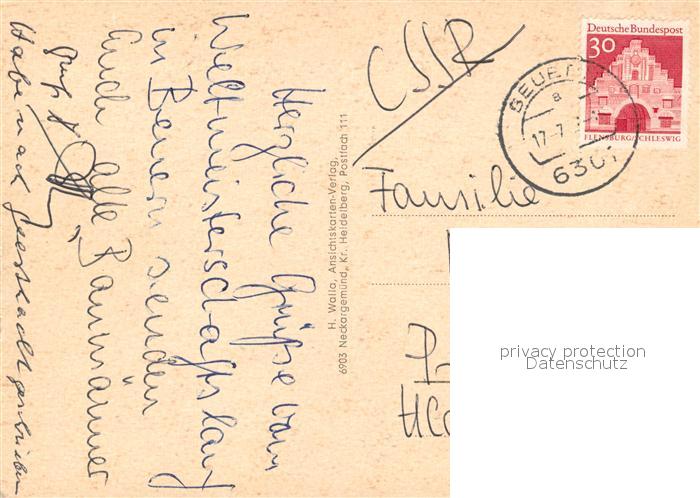 Herzliche Grüße vom
Weltmeisterschaftslauf
in Beuern senden
Euch alle
Gruß
Habe nach geschrieben
H. Walla, Ansichtskarten-Verlag,
6903 Neckargemünd, Kr. Heidelberg, Postfach 111
CSSR
Deutsche Bundespost
30
FLENSBURG/SCHLESWIG
BEUERN
a
17.-7.
6301
Familie
privacy protection
Datenschutz